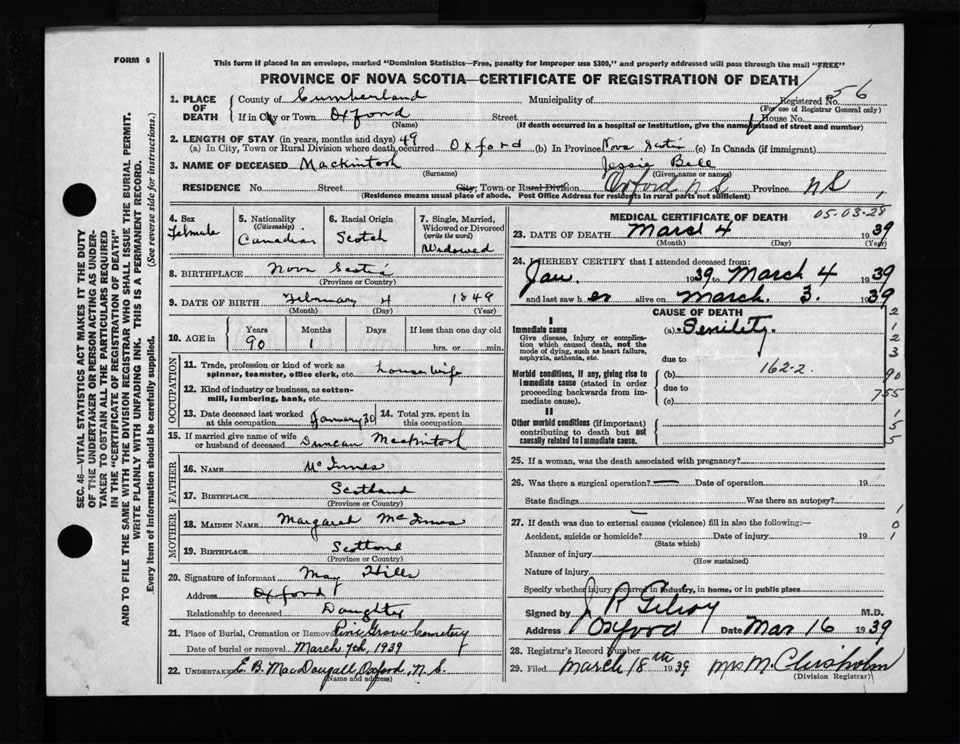 FORM 6
This form if placed in an envelope, marked "Dominion Statistics—Free, penalty for improper use $300," and properly addressed will pass through the mail "FREE"
PROVINCE OF NOVA SCOTIA—CERTIFICATE OF REGISTRATION OF DEATH
1. PLACE OF DEATH County of Cumberland Municipality of Registered No. 56
(For use of Registrar General only)
If in City or Town Oxford Street House No.
(Name) (If death occurred in a hospital or institution, give the name instead of street and number)
2. LENGTH OF STAY (in years, months and days) 49
(a) In City, Town or Rural Division where death occurred Oxford (b) In Province Nova Scotia (c) In Canada (if immigrant)
3. NAME OF DECEASED Mackintosh Jessie Bell
(Surname) (Given name or names)
RESIDENCE No. Street City, Town or Rural Division Oxford N S Province N S
(Residence means usual place of abode. Post Office Address for residents in rural parts not sufficient)
4. Sex Female
5. Nationality (Citizenship) Canadian
6. Racial Origin Scotch
7. Single, Married, Widowed or Divorced (write the word) Widowed
8. BIRTHPLACE Nova Scotia
(Province or Country)
9. DATE OF BIRTH February 4 1849
(Month) (Day) (Year)
10. AGE in Years 90 Months 1 Days If less than one day old hrs. or min.
OCCUPATION
11. Trade, profession or kind of work as spinner, teamster, office clerk, etc. housewife
12. Kind of industry or business, as cotton-mill, lumbering, bank, etc.
13. Date deceased last worked at this occupation January 30
14. Total yrs. spent in this occupation
15. If married give name of wife or husband of deceased Duncan Mackintosh
FATHER
16. NAME McInnes
17. BIRTHPLACE Scotland
(Province or Country)
MOTHER
18. MAIDEN NAME Margaret McInnes
19. BIRTHPLACE Scotland
(Province or Country)
20. Signature of informant May Hills
Address Oxford
Relationship to deceased Daughter
21. Place of Burial, Cremation or Removal Pine Grove Cemetery
Date of burial or removal March 7th, 1939
22. UNDERTAKER E. B. MacDougall Oxford, N. S.
(Name and address)
MEDICAL CERTIFICATE OF DEATH
05-03-28
23. DATE OF DEATH March 4 1939
(Month) (Day) (Year)
24. I HEREBY CERTIFY that I attended deceased from:
Jan. 1939 to March 4 1939
and last saw her alive on March. 3. 1939
CAUSE OF DEATH
I
Immediate cause (a) Senility
Give disease, injury or complication which caused death, not the mode of dying, such as heart failure, asphyxia, asthenia, etc.
due to
162-2
Morbid conditions, if any, giving rise to immediate cause (stated in order proceeding backwards from immediate cause). (b)
due to
(c)
II
Other morbid conditions (if important) contributing to death but not causally related to immediate cause.
2
1
2
3
90
755
1
5
5
25. If a woman, was the death associated with pregnancy?
26. Was there a surgical operation? — Date of operation 19
State findings Was there an autopsy?
27. If death was due to external causes (violence) fill in also the following:—
Accident, suicide or homicide? Date of injury 19
(State which)
1
0
1
Manner of injury
(How sustained)
Nature of injury
Specify whether injury occurred in industry, in home, or in public place
Signed by J. R Gilroy M.D.
Address Oxford Date Mar 16 1939
28. Registrar's Record Number
29. Filed March 18th 1939 Mrs M. Chisholm
(Division Registrar)
SEC. 46—VITAL STATISTICS ACT MAKES IT THE DUTY
OF THE UNDERTAKER OR PERSON ACTING AS UNDER-
TAKER TO OBTAIN ALL THE PARTICULARS REQUIRED
IN THE "CERTIFICATE OF REGISTRATION OF DEATH"
AND TO FILE THE SAME WITH THE DIVISION REGISTRAR WHO SHALL ISSUE THE BURIAL PERMIT.
WRITE PLAINLY WITH UNFADING INK. THIS IS A PERMANENT RECORD.
Every item of information should be carefully supplied. (See reverse side for instructions.)